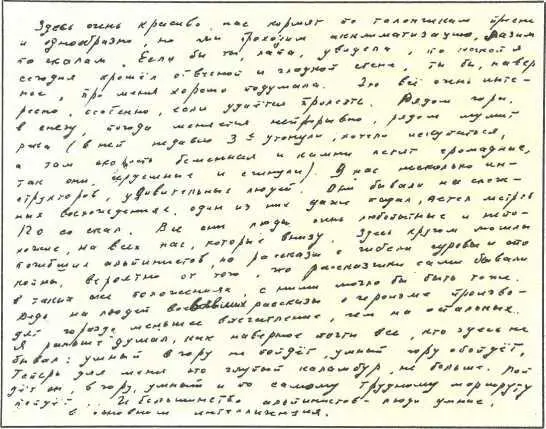 Здесь очень красиво, нас кормят по талончикам пресно
и однообразно, но мы проходим акклиматизацию, лазим
по скалам. Если бы ты, лапа, увидела, по какой я
сегодня прошёл отвесной и гладкой стене, ты бы, навер
ное, про меня хорошо подумала. Это всё очень инте-
ресно, особенно, если удаётся пролезть. Рядом горы,
в снегу, погода меняется непрерывно, рядом шумит
река (в ней недавно 3 утонули, хотели искупаться,
а там скорость бешенная и камни летят громадные,
так они, сердешные и сгинули). У нас несколько ин-
структоров, удивительные люди. Они бывали на слож-
ных восхождениях, один из них даже падал, летел метров
120 со скал. Все они люди очень любопытные и непо-
хожие, на всех нас, которые внизу. Здесь кругом могилы
погибших альпинистов, но рассказы о гибели суровы и спо
койны, вероятно от того, что рассказчики сами бывали
в таких же положениях, с ними могло бы быть тоже.
Ведь на людей рассказы о героизме произво-
дят гораздо меньшее впечатление, чем на остальных.
Я раньше думал, как наверное почти все, кто здесь не
бывал: умный в гору не пойдёт, умный гору обойдёт,
Теперь для меня это глупый каламбур, не больше. Пой
дёт он, в гору, умный и по самому трудному маршруту
пойдёт. И большинство альпинистов - люди умные,
в основном интеллигенция.